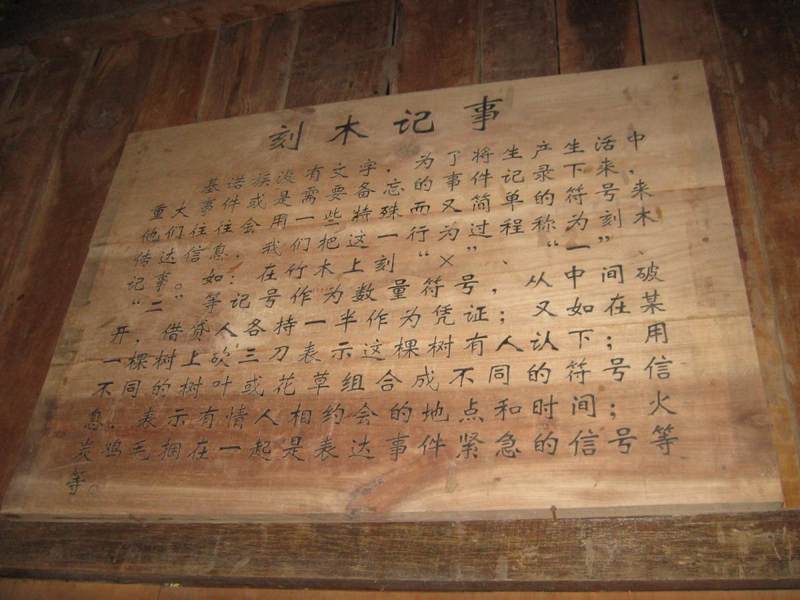 刻木记事
基诺族没有文字，为了将生产生活中
重大事件或是需要备忘的事件记录下来，
他们往往会用一些特殊而又简单的符号来
传达信息，我们把这一行为过程称为刻木
记事。如：在竹木上刻“×”、“一”、
“二”等记号作为数量符号，从中间破
开，借贷人各持一半作为凭证；又如在某
一棵树上砍三刀表示这棵树有人认下；用
不同的树叶或花草组合成不同的符号信
息，表示有情人相约会的地点和时间；火
炭鸡毛捆在一起是表达事件紧急的信号等
等。